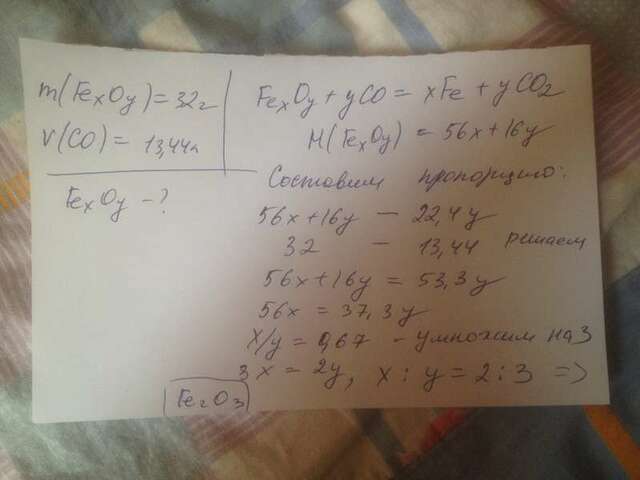 m(FexOy) = 32г
V(CO) = 13,44л
FexOy - ?
FexOy + yCO = xFe + yCO2
M(FexOy) = 56x+16y
Составим пропорцию:
56x+16y — 22,4y
32 — 13,44 решаем
56x+16y = 53,3y
56x = 37,3y
x/y = 0,67 - умножим на 3
3x = 2y, x : y = 2 : 3 =>
Fe2O3